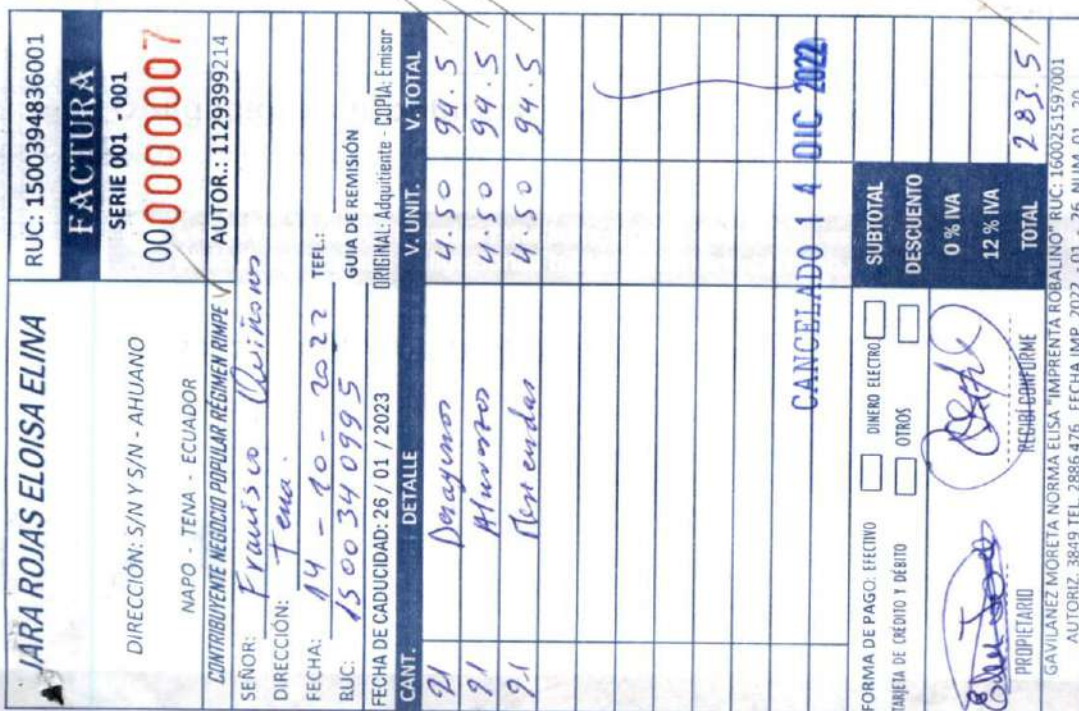 JARA ROJAS ELOISA ELINA
DIRECCIÓN: S/N Y S/N - AHUANO
NAPO - TENA - ECUADOR
CONTRIBUYENTE NEGOCIO POPULAR RÉGIMEN RIMPE
RUC: 1500394836001
FACTURA
SERIE 001 - 001
000000007
AUTOR.: 1129399214
SEÑOR: Francisco Quiñones
DIRECCIÓN: Tena.
FECHA: 14 - 10 - 2022 TEF.:
RUC: 1500340995 GUIA DE REMISIÓN
FECHA DE CADUCIDAD: 26 / 01 / 2023 ORIGINAL: Adquitiente - COPIA: Emisor
CANT. DETALLE V. UNIT. V. TOTAL
21 Desayunos 4.50 94.5
21 Almuerzos 4.50 94.5
21 Meriendas 4.50 94.5
CANCELADO 14 DIC 2022
FORMA DE PAGO: EFECTIVO DINERO ELECTRO. SUBTOTAL
TARJETA DE CRÉDITO Y DÉBITO OTROS DESCUENTO
0 % IVA
12 % IVA
PROPIETARIO RECIBÍ CONFORME TOTAL 283.5
GAVILANEZ MORETA NORMA ELISA "IMPRENTA ROBALINO" RUC: 1600251597001
AUTORIZ. 3849 TEL. 2886476 FECHA IMP. 2022 - 01 - 26 NUM. 01 - 20